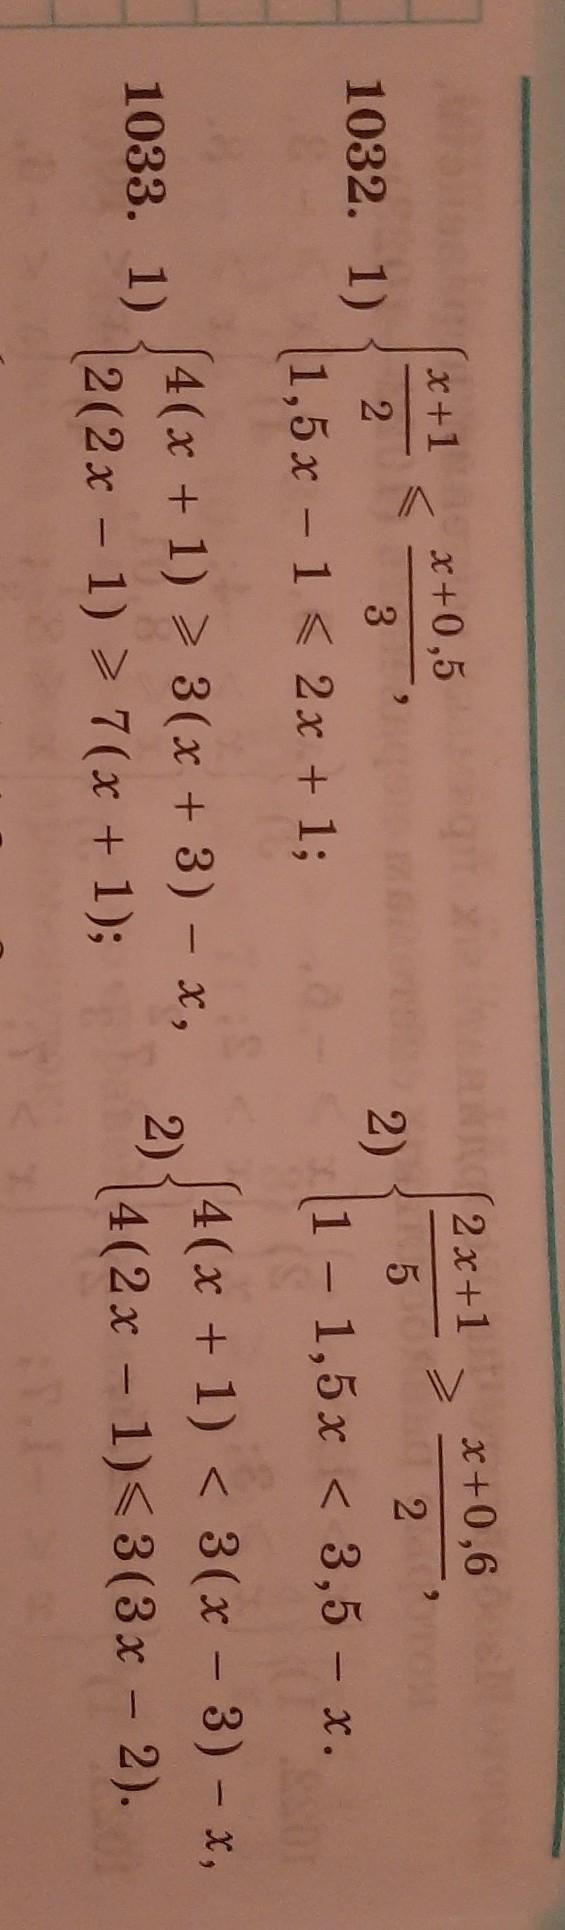 1032. 1) { (x+1)/2 ⩽ (x+0,5)/3,
1,5x − 1 ⩽ 2x + 1;
2) { (2x+1)/5 ⩾ (x+0,6)/2,
1 − 1,5x < 3,5 − x.
1033. 1) { 4(x + 1) ⩾ 3(x + 3) − x,
2(2x − 1) ⩾ 7(x + 1);
2) { 4(x + 1) < 3(x − 3) − x,
4(2x − 1) ⩽ 3(3x − 2).